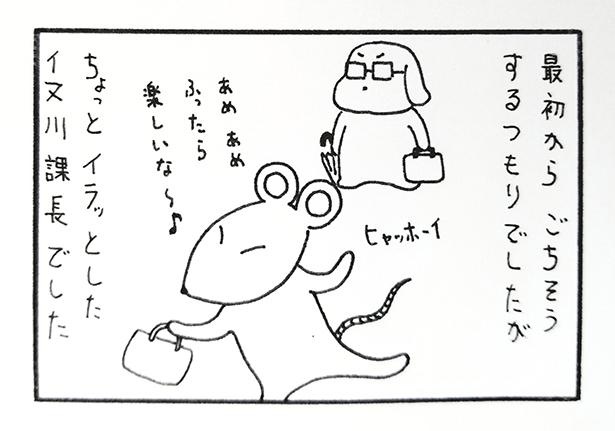 最初から ごちそう
するつもりでしたが
ヒャッホーイ
あめ あめ
ふったら
楽しいな～♪
ちょっと イラッとした
イヌ川 課長でした